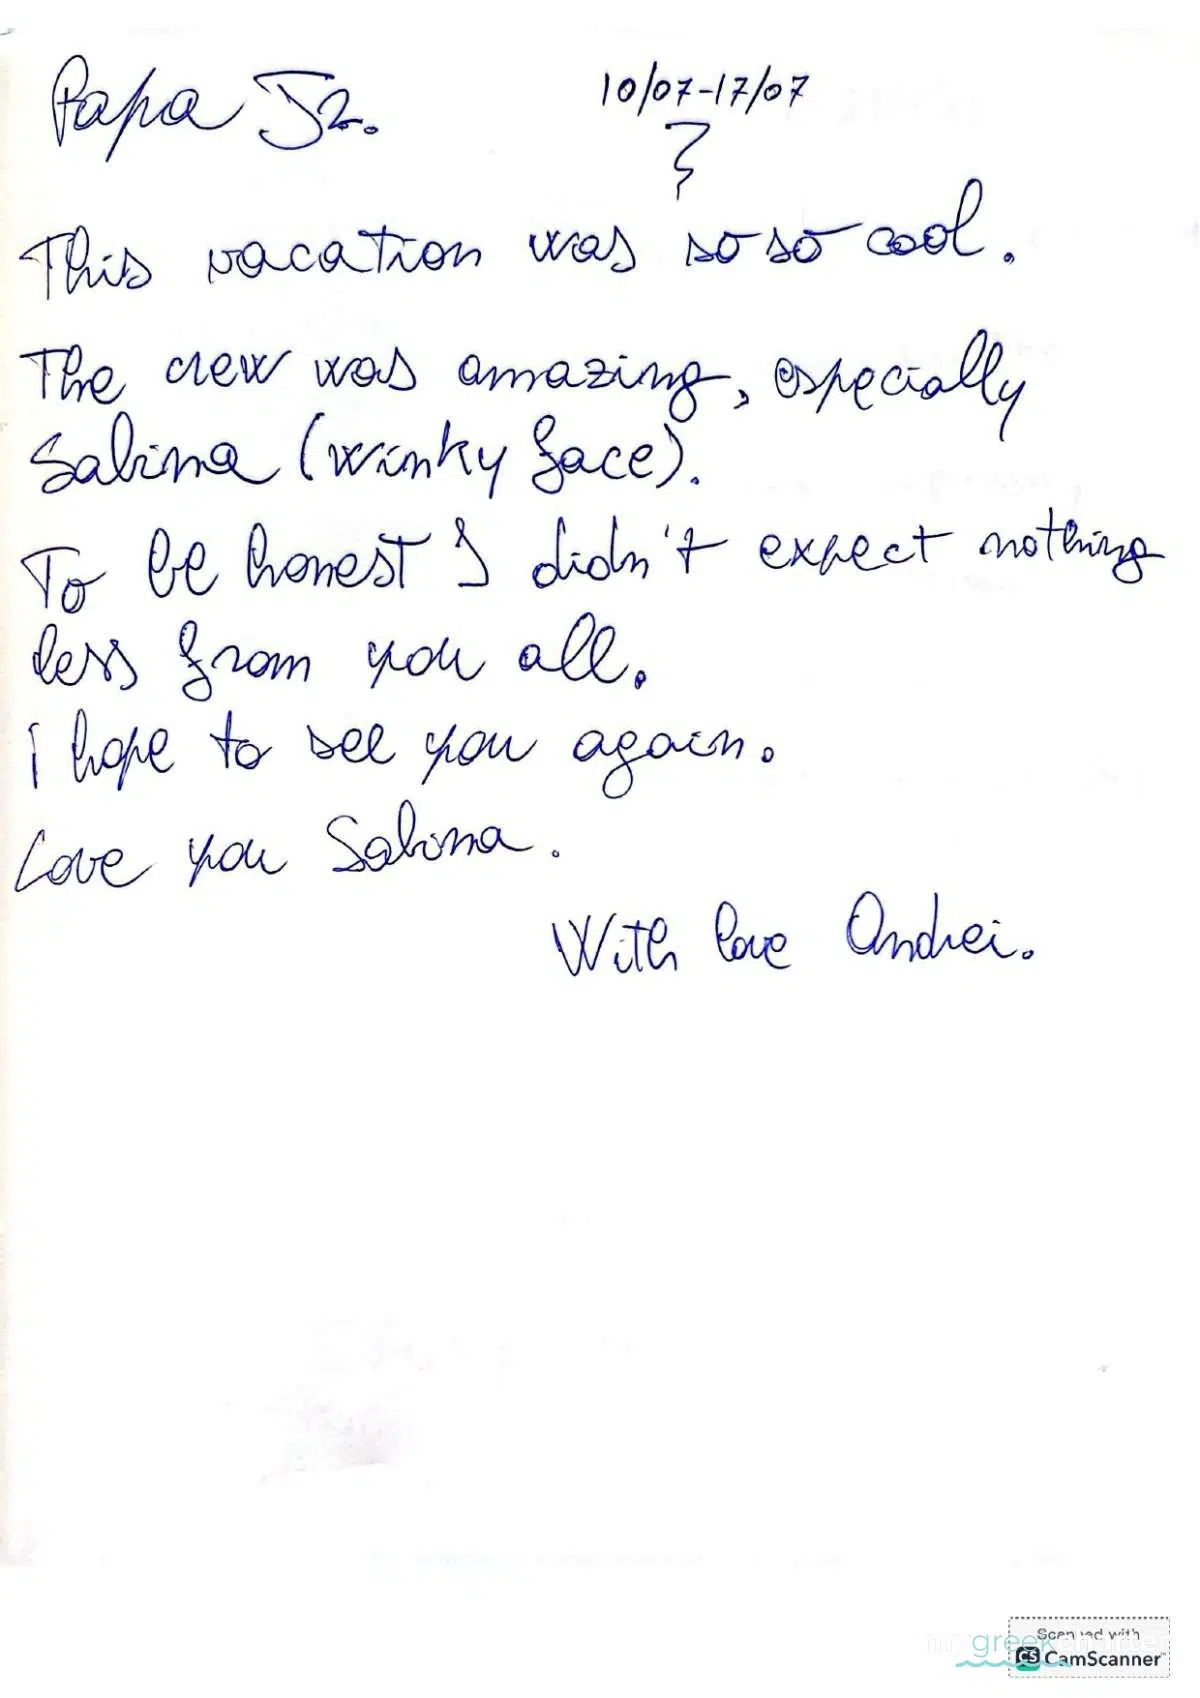 Papa Jr.
10/07-17/07
This vacation was so so cool.
The crew was amazing, especially
Sabina (winky face).
To be honest I didn't expect nothing
less from you all.
i hope to see you again.
Love you Sabina.
With love Andrei.
Scanned with
my greek charter
CS CamScanner